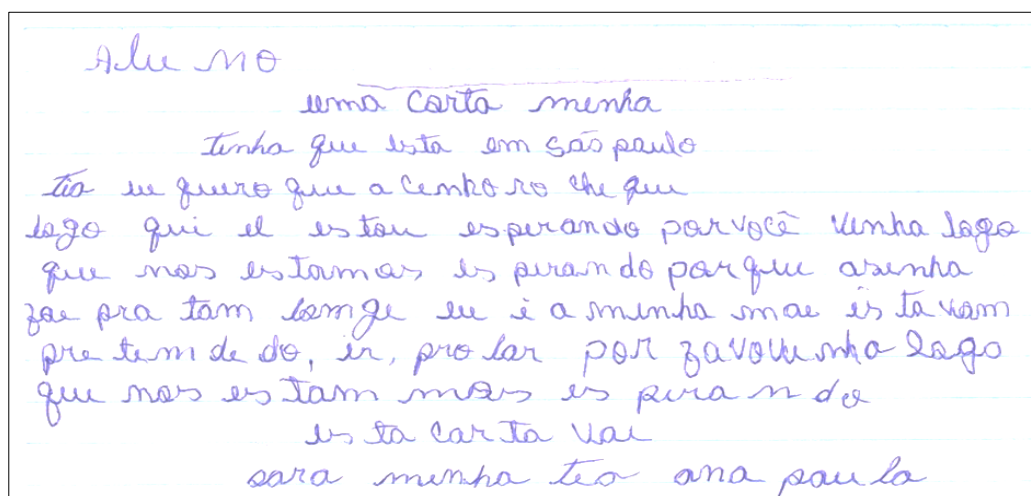 Alu no
uma carta minha
tinha que esta em são paulo
tia eu quero que a cenho ro che que
logo qui el estou esperando por você venha logo
que nos estamos es perando porque asenha
foe pra tam lomge eu i a minha mae es ta vam
pre tem de do, ir, pro lar por favovenha logo
que nos es tam mos es pera n do
es ta car ta vai
para minha tea ana pau la